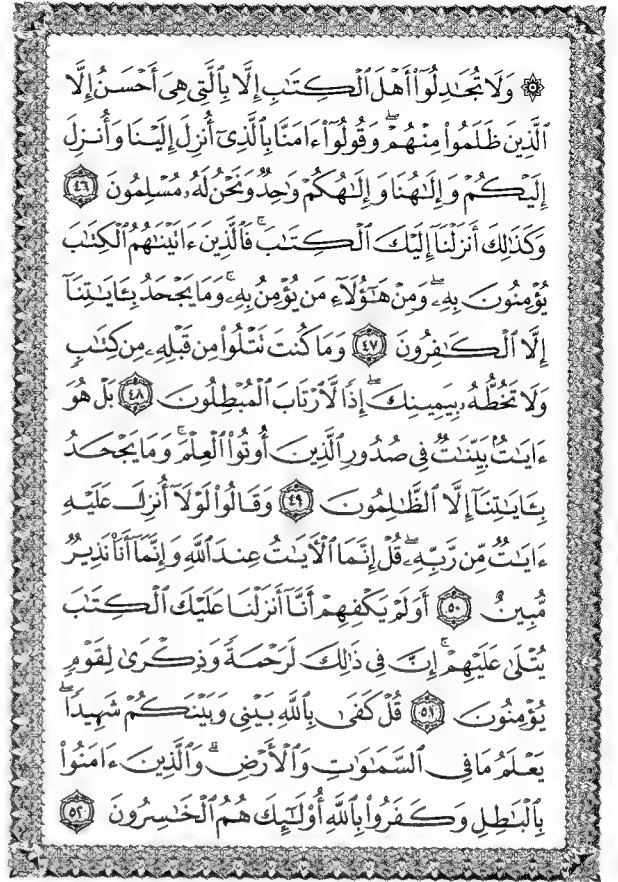 ۞ وَلَا تُجَـٰدِلُوٓا۟ أَهْلَ ٱلْكِتَـٰبِ إِلَّا بِٱلَّتِى هِىَ أَحْسَنُ إِلَّا
ٱلَّذِينَ ظَلَمُوا۟ مِنْهُمْ ۖ وَقُولُوٓا۟ ءَامَنَّا بِٱلَّذِىٓ أُنزِلَ إِلَيْنَا وَأُنزِلَ
إِلَيْكُمْ وَإِلَـٰهُنَا وَإِلَـٰهُكُمْ وَٰحِدٌ وَنَحْنُ لَهُۥ مُسْلِمُونَ ٤٦
وَكَذَٰلِكَ أَنزَلْنَآ إِلَيْكَ ٱلْكِتَـٰبَ ۚ فَٱلَّذِينَ ءَاتَيْنَـٰهُمُ ٱلْكِتَـٰبَ
يُؤْمِنُونَ بِهِۦ ۖ وَمِنْ هَـٰٓؤُلَآءِ مَن يُؤْمِنُ بِهِۦ ۚ وَمَا يَجْحَدُ بِـَٔايَـٰتِنَآ
إِلَّا ٱلْكَـٰفِرُونَ ٤٧ وَمَا كُنتَ تَتْلُوا۟ مِن قَبْلِهِۦ مِن كِتَـٰبٍ
وَلَا تَخُطُّهُۥ بِيَمِينِكَ ۖ إِذًا لَّٱرْتَابَ ٱلْمُبْطِلُونَ ٤٨ بَلْ هُوَ
ءَايَـٰتٌۢ بَيِّنَـٰتٌ فِى صُدُورِ ٱلَّذِينَ أُوتُوا۟ ٱلْعِلْمَ ۚ وَمَا يَجْحَدُ
بِـَٔايَـٰتِنَآ إِلَّا ٱلظَّـٰلِمُونَ ٤٩ وَقَالُوا۟ لَوْلَآ أُنزِلَ عَلَيْهِ
ءَايَـٰتٌ مِّن رَّبِّهِۦ ۖ قُلْ إِنَّمَا ٱلْـَٔايَـٰتُ عِندَ ٱللَّهِ وَإِنَّمَآ أَنَا۠ نَذِيرٌ
مُّبِينٌ ٥٠ أَوَلَمْ يَكْفِهِمْ أَنَّآ أَنزَلْنَا عَلَيْكَ ٱلْكِتَـٰبَ
يُتْلَىٰ عَلَيْهِمْ ۚ إِنَّ فِى ذَٰلِكَ لَرَحْمَةً وَذِكْرَىٰ لِقَوْمٍ
يُؤْمِنُونَ ٥١ قُلْ كَفَىٰ بِٱللَّهِ بَيْنِى وَبَيْنَكُمْ شَهِيدًا ۖ
يَعْلَمُ مَا فِى ٱلسَّمَـٰوَٰتِ وَٱلْأَرْضِ ۗ وَٱلَّذِينَ ءَامَنُوا۟
بِٱلْبَـٰطِلِ وَكَفَرُوا۟ بِٱللَّهِ أُو۟لَـٰٓئِكَ هُمُ ٱلْخَـٰسِرُونَ ٥٢